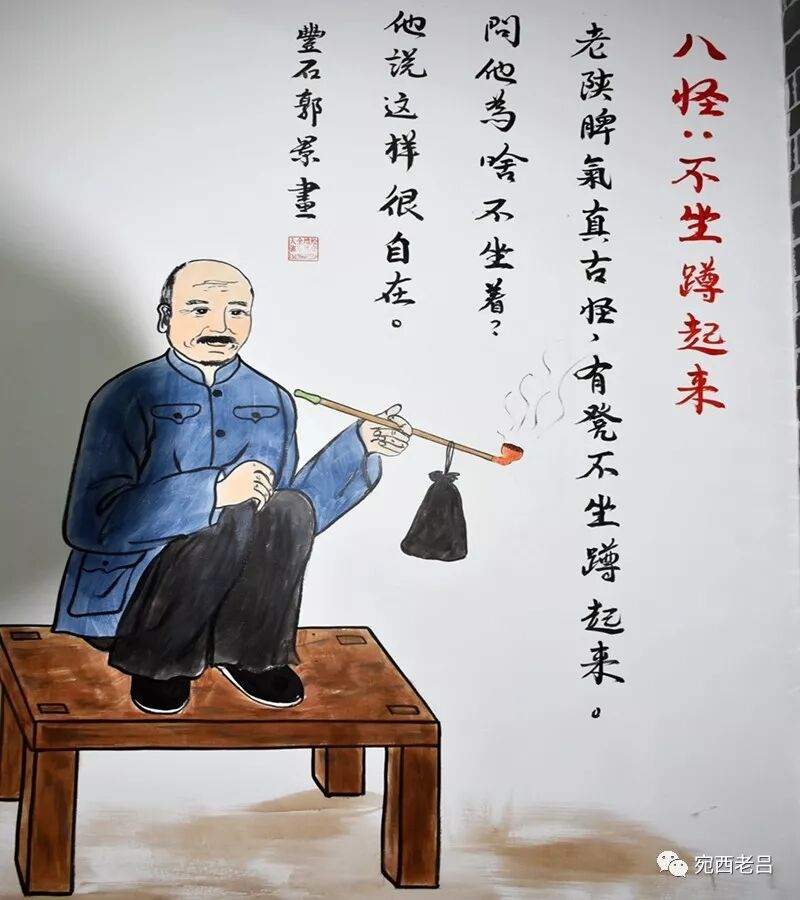 八怪：不坐蹲起来
老陕脾氣真古怪，有凳不坐蹲起来。
問他為啥不坐着？
他説这样很自在。
豐石郭景畫
宛西老吕